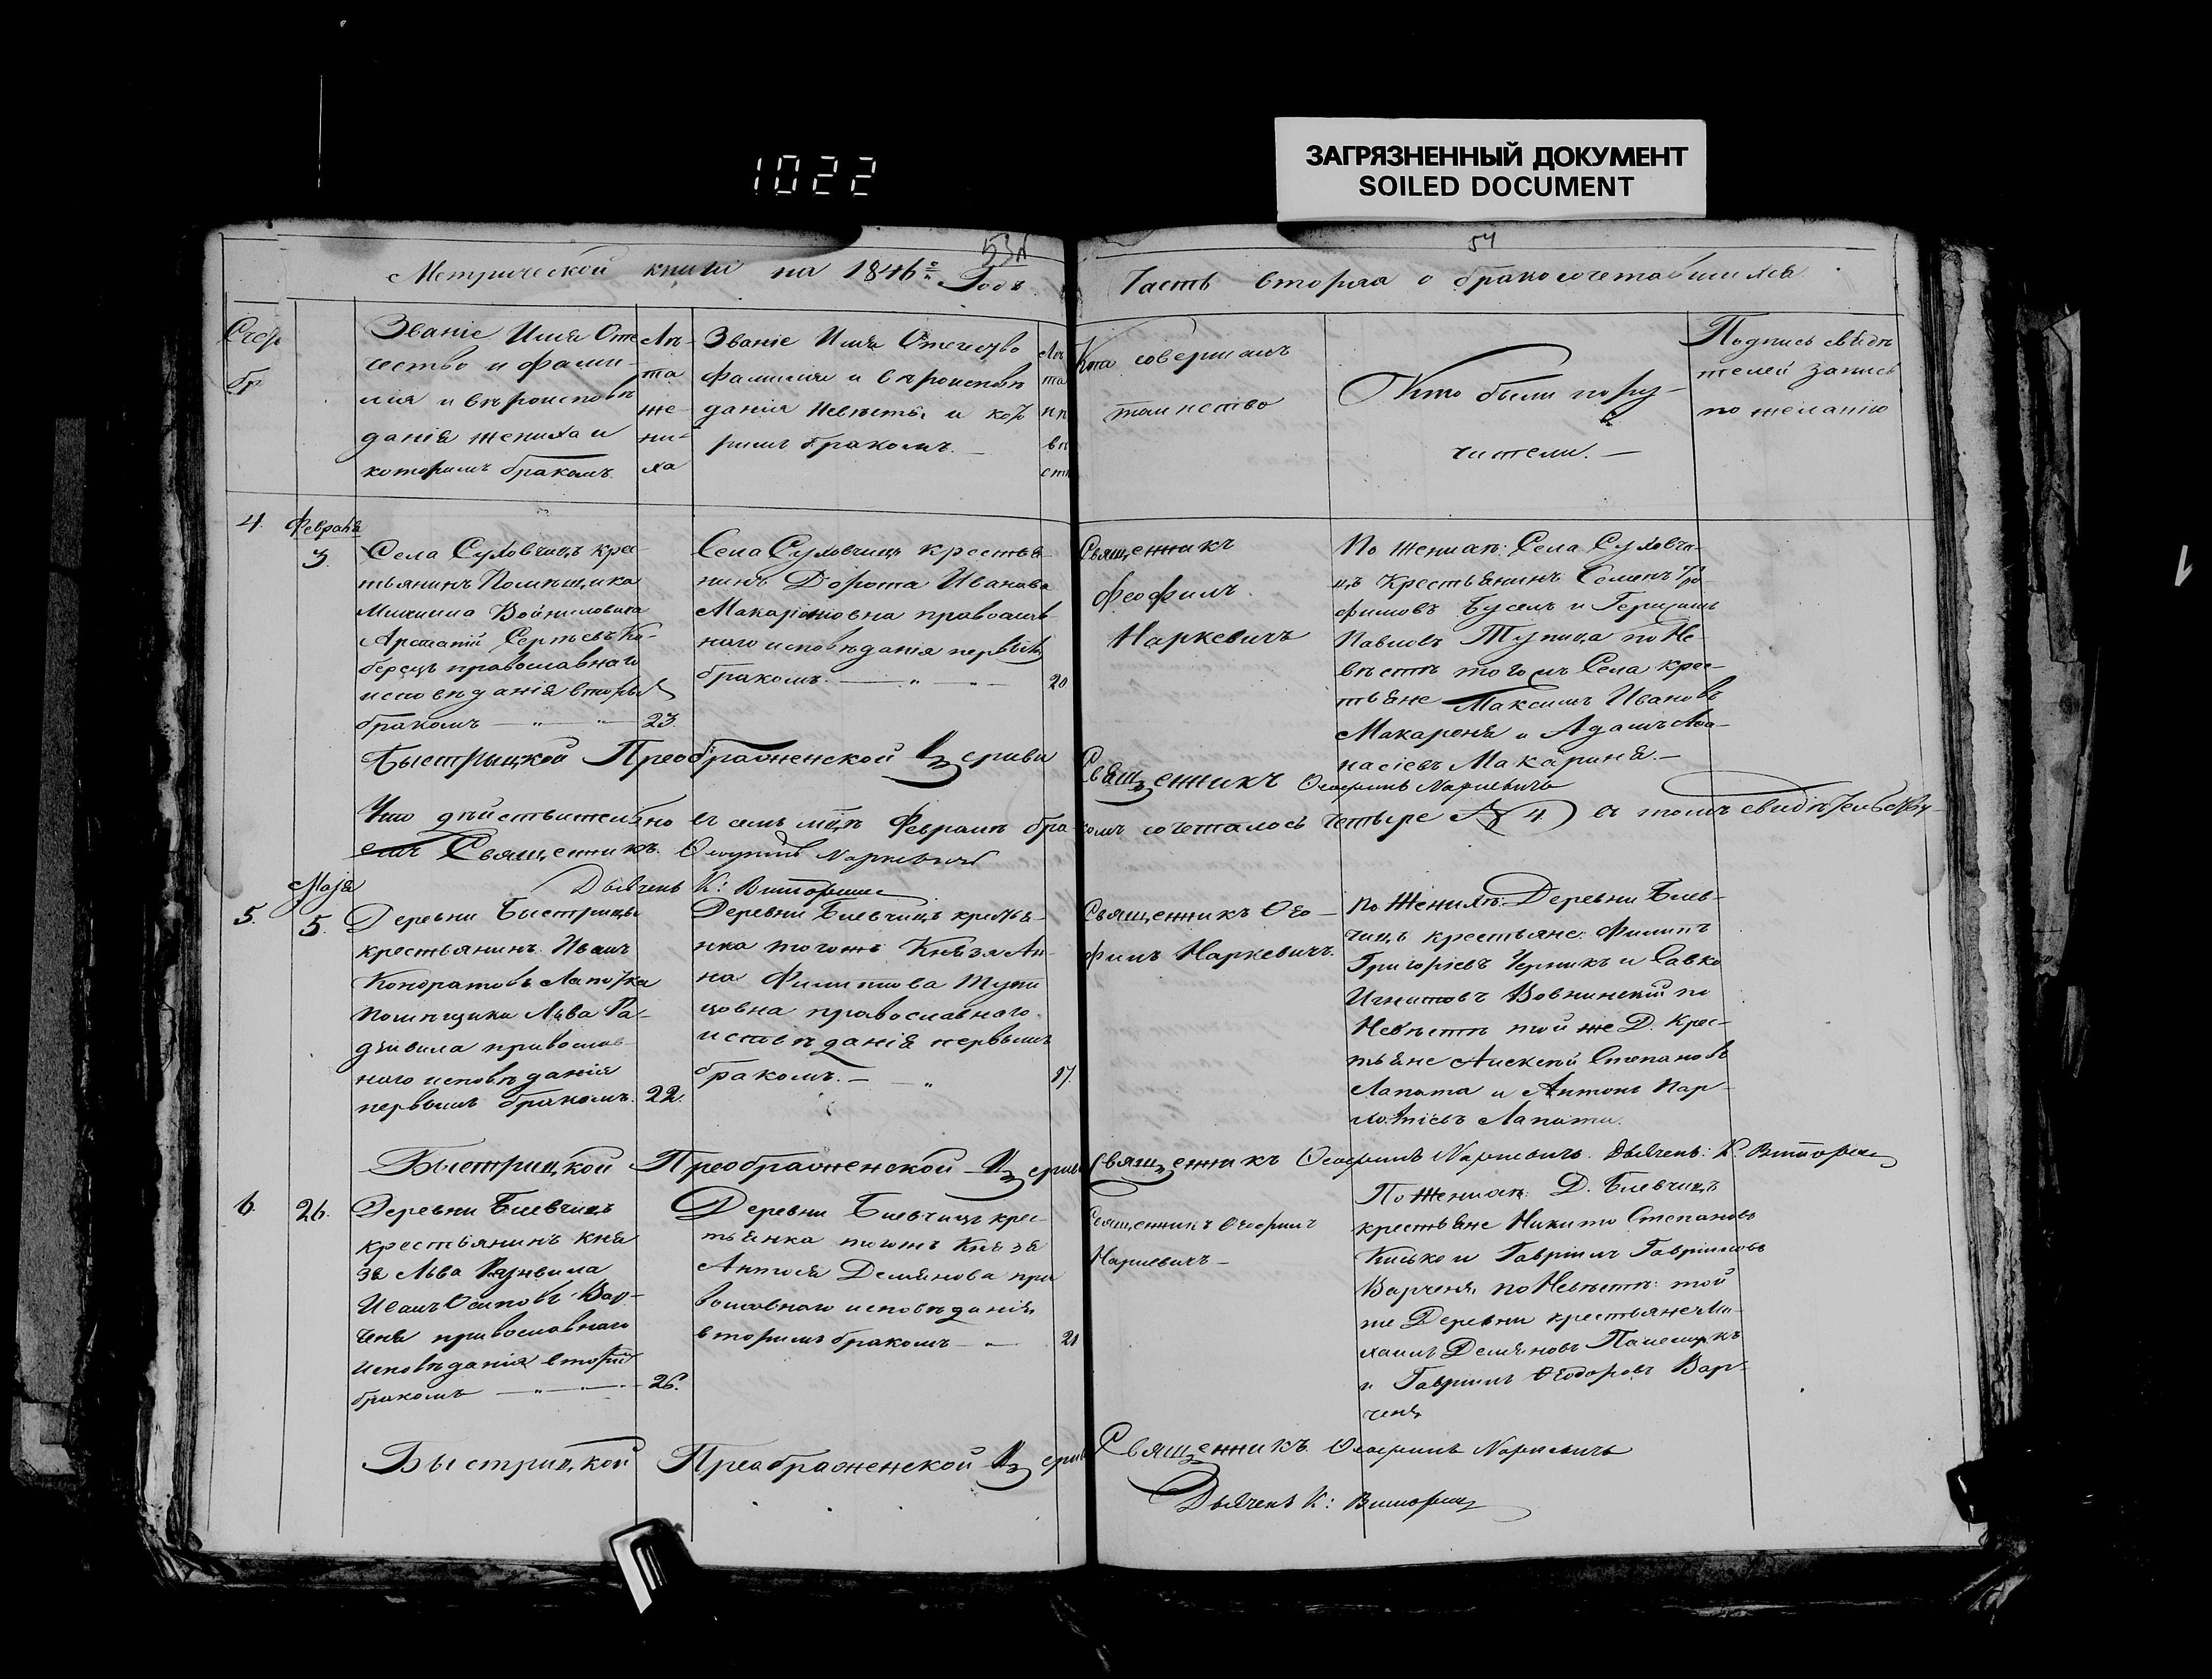 1022
ЗАГРЯЗНЕННЫЙ ДОКУМЕНТ
SOILED DOCUMENT
53
54
Метрической книги на 1846 Годъ
Часть вторая о бракосочетавшихся
Званіе Имя Оте
чество и фами-
лія и вѣроисповѣ
данія жениха и
которимъ бракомъ
Лѣ-
та
же-
ни-
ха
Званіе Имя Отечество
фамилія и вѣроисповѣ
данія невѣсты и кото
римъ бракомъ.
Лѣ
та
не
вѣ
сты
Кто совершалъ
таинство
Кто были пору-
чители.
Подпись свѣдѣ
телей запись
по желанію
4. Февраля
3.
Села Суховчицъ крес-
тьянинъ Помѣщика
Михаила Войниловича
Сергѣевъ Ко-
берецъ православнаго
исповѣданія вторым
бракомъ 23
Села Суховчицъ крестья-
Дорота Иванова
Макаріновна православ-
наго исповѣданія первым
бракомъ. 20
Священникъ
Феофилъ
Наркевичъ
По женихѣ: Села Суховчи-
цъ Крестьянинъ Семенъ Тро-
фимовъ Бусель и Герасимъ
Павловъ Тупица по Не-
вѣстѣ того жъ Села крес-
тьяне Максимъ Ивановъ
Макареня и Адамъ Афа-
насіевъ Макариня.
Быстрицкой Преображенской Церкви Священникъ Феофилъ Наркевичъ
Что дѣйствительно въ семъ мцѣ Февралѣ бракомъ сочеталось четыре 4) въ томъ свидѣтельству-
емъ Священникъ Феофилъ Наркевичъ
Дьячекъ К:
Мая
5. 5.
Деревни Быстрицы
крестьянинъ Иванъ
Кондратовъ Лапотка
Помѣщика Льва Ра-
дзивила православ-
наго исповѣданія
первымъ бракомъ. 22.
Деревни Биевчицъ крестья-
нка тогожъ Князя Ан-
на Филипова Тупи
цовна православнаго
исповѣданія первымъ
бракомъ. 17.
Священникъ Фео-
филъ Наркевичъ.
По Женихѣ: Деревни Биев-
чицъ крестьяне: Филипъ
Григоріевъ Черникъ и Савка
Игнатовъ по
Невѣстѣ той же Д. Крес-
тьяне Алексѣй Степановъ
Лапата и Антонъ Вар-
ломѣевъ Лапата.
Быстрицкой Преображенской Церкви Священникъ Феофилъ Наркевичъ. Дьячекъ: К.
6. 26.
Деревни Биевчицъ
крестьянинъ Кня
зя Льва Радзивила
Иванъ Осиповъ Вар-
ченя православнаго
исповѣданія вторым
бракомъ 26.
Деревни Биевчицъ крес-
тьянка тогожъ Князя
Антося Демянова пра
вославнаго исповѣданія
вторимъ бракомъ 21
Священникъ Феофилъ
Наркевичъ
По Женихѣ: Д. Биевчицъ
крестьяне Никита Степановъ
Кисько и Гавріилъ Гавріиловъ
Варченя, по Невѣстѣ: той
же Деревни крестьяне Ми-
хаилъ Демяновъ
и Гавріилъ Феодоровъ Вар-
ченя
Быстрицкой Преображенской Церкви Священникъ Феофилъ Наркевичъ
Дьячекъ К: